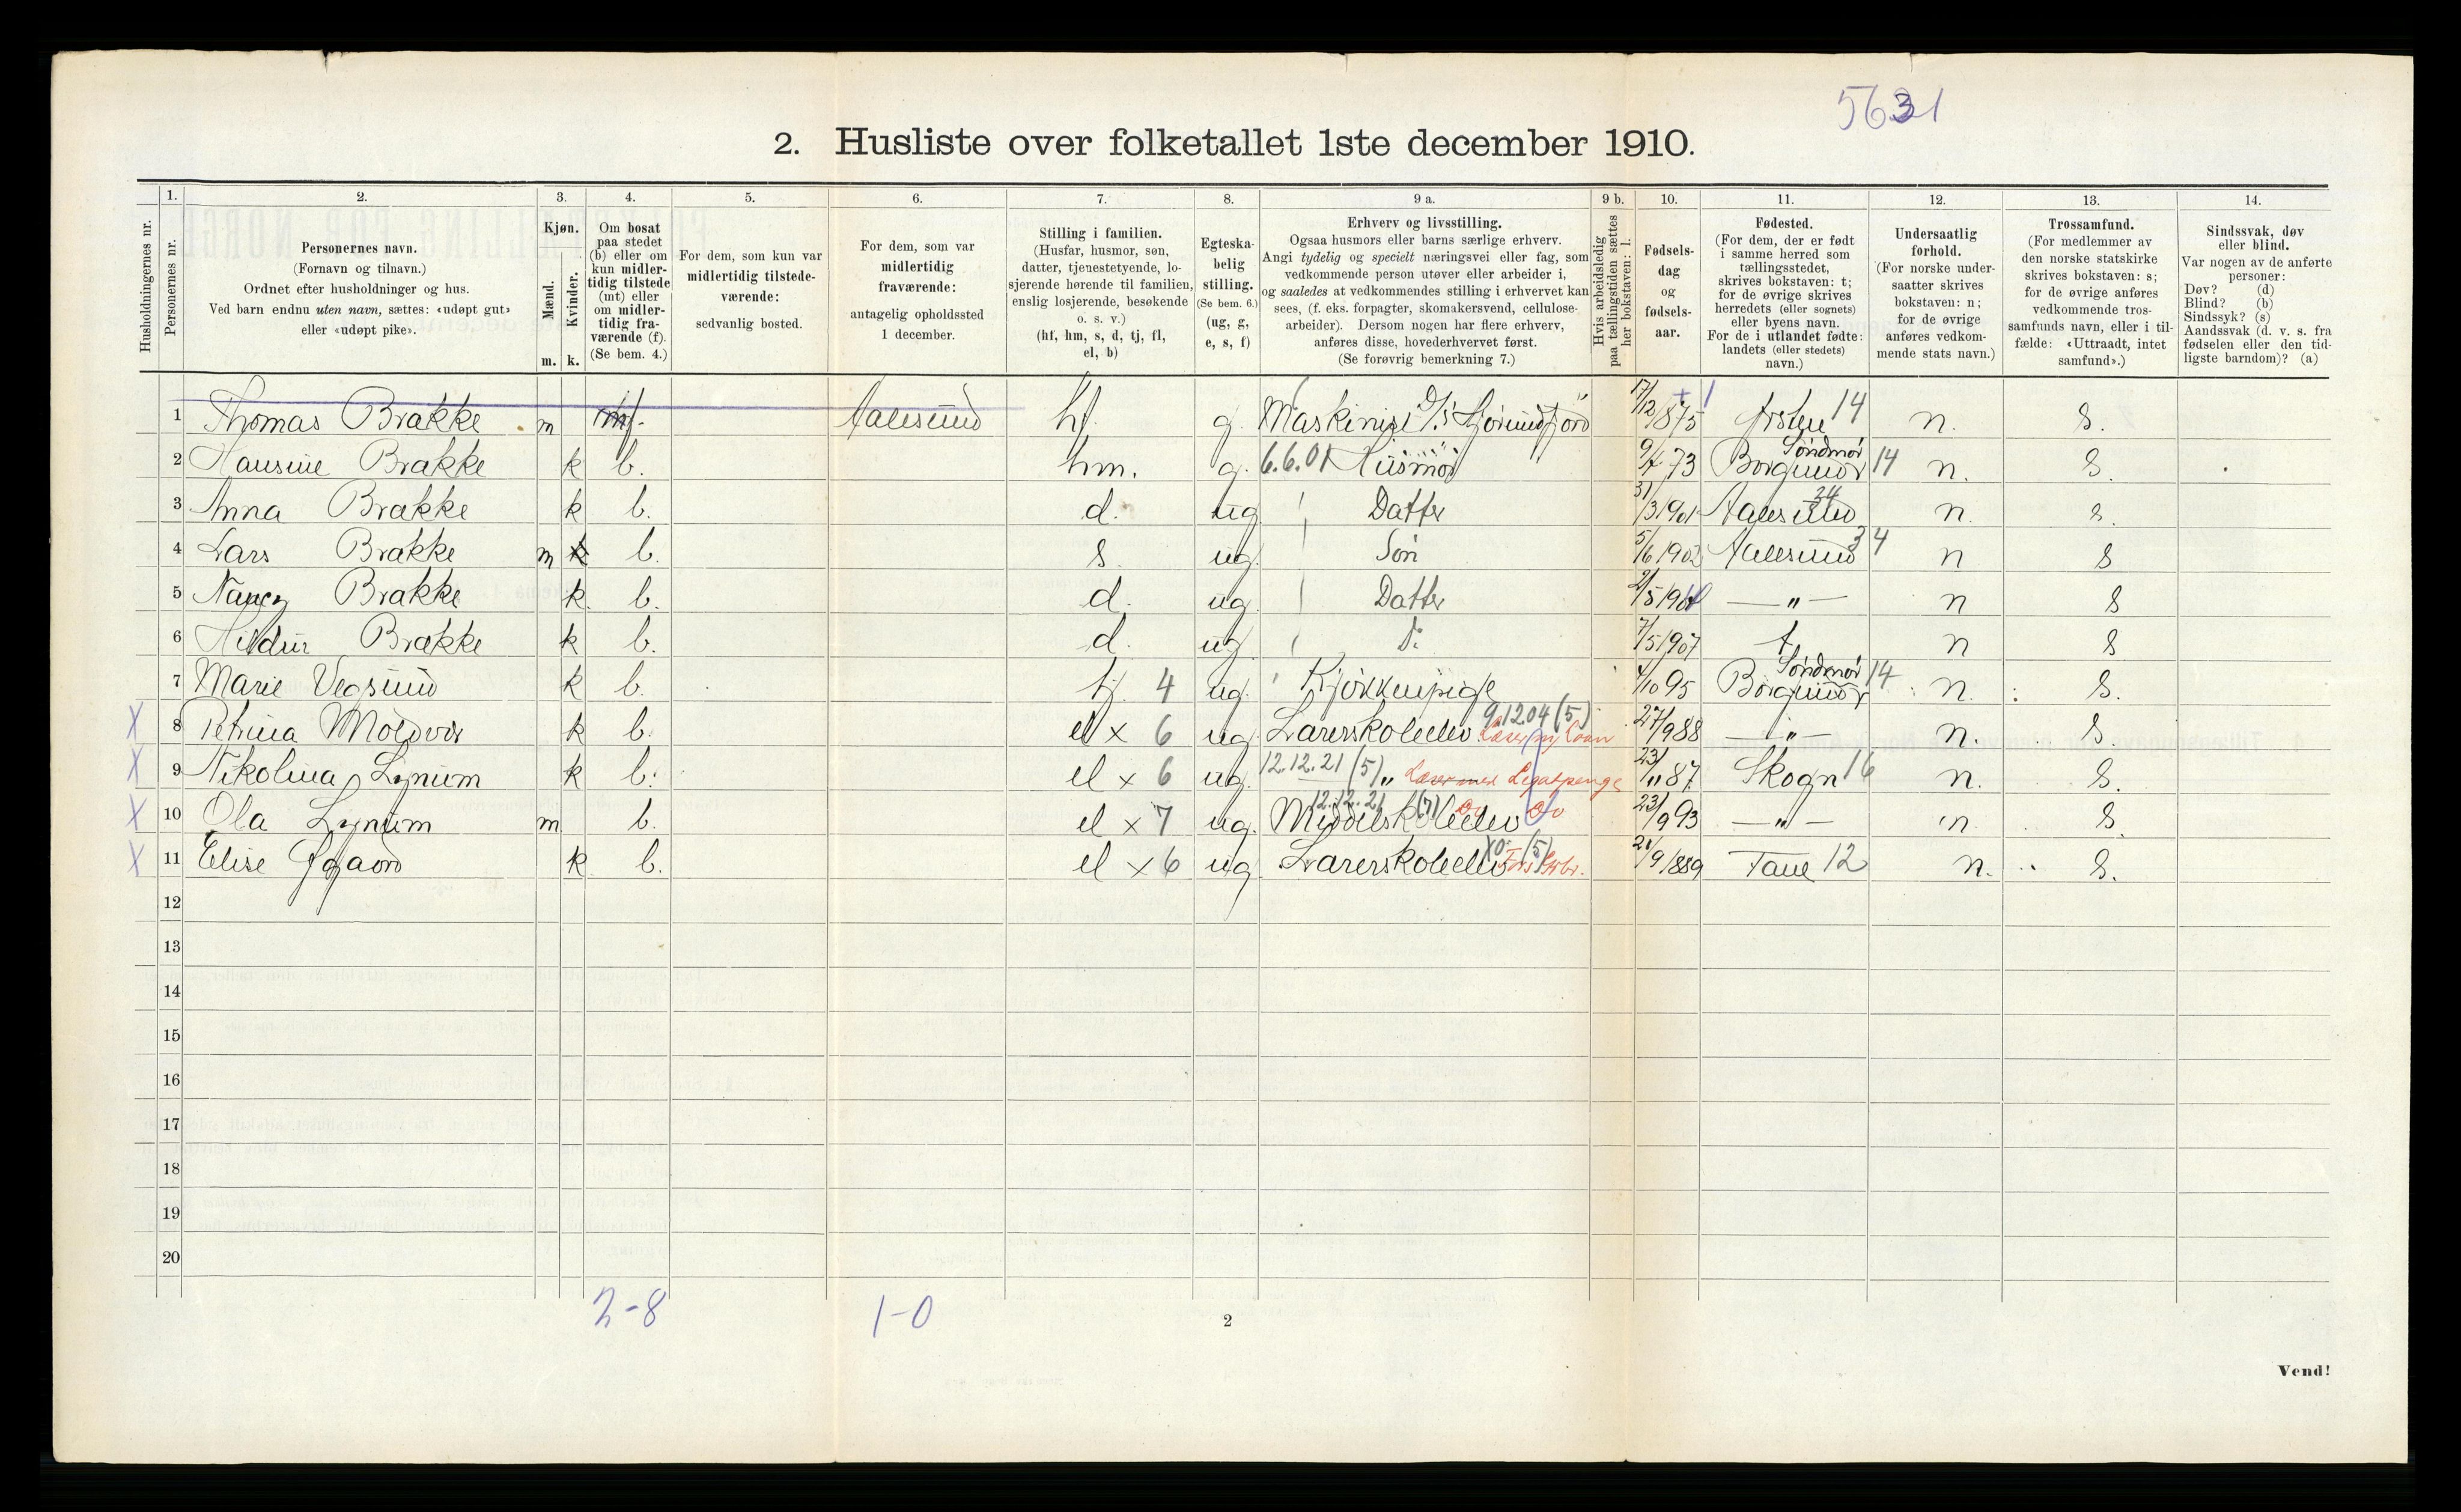 5631
2. Husliste over folketallet 1ste december 1910.
Husholdningernes nr.
1. Personernes nr.
2. Personernes navn. (Fornavn og tilnavn.) Ordnet efter husholdninger og hus. Ved barn endnu uten navn, sættes: «udøpt gut» eller «udøpt pike».
3. Kjøn. Mænd. m. Kvinder. k.
4. Om bosat paa stedet (b) eller om kun midlertidig tilstede (mt) eller om midlertidig fraværende (f). (Se bem. 4.)
5. For dem, som kun var midlertidig tilstedeværende: sedvanlig bosted.
6. For dem, som var midlertidig fraværende: antagelig opholdssted 1 december.
7. Stilling i familien. (Husfar, husmor, søn, datter, tjenestetyende, losjerende hørende til familien, enslig losjerende, besøkende o. s. v.) (hf, hm, s, d, tj, fl, el, b)
8. Egteskabelig stilling. (Se bem. 6.) (ug, g, e, s, f)
9 a. Erhverv og livsstilling. Ogsaa husmors eller barns særlige erhverv. Angi tydelig og specielt næringsvei eller fag, som vedkommende person utøver eller arbeider i, og saaledes at vedkommendes stilling i erhvervet kan sees, (f. eks. forpagter, skomakersvend, cellulosearbeider). Dersom nogen har flere erhverv, anføres disse, hovederhvervet først. (Se forøvrig bemerkning 7.)
9 b. Hvis arbeidsledig paa tællingstiden sættes her bokstaven: l.
10. Fødselsdag og fødselsaar.
11. Fødested. (For dem, der er født i samme herred som tællingsstedet, skrives bokstaven: t; for de øvrige skrives herredets (eller sognets) eller byens navn. For de i utlandet fødte: landets (eller stedets) navn.)
12. Undersaatlig forhold. (For norske undersaatter skrives bokstaven: n; for de øvrige anføres vedkommende stats navn.)
13. Trossamfund. (For medlemmer av den norske statskirke skrives bokstaven: s; for de øvrige anføres vedkommende trossamfunds navn, eller i tilfælde: «Uttraadt, intet samfund».)
14. Sindssvak, døv eller blind. Var nogen av de anførte personer: Døv? (d) Blind? (b) Sindssyk? (s) Aandssvak (d. v. s. fra fødselen eller den tidligste barndom)? (a)
1 Thomas Brakke m f. Aalesund hf. g. Maskinist D/S Hjørundfjord 17/12 1875 Ørsten 14 n. S.
2 Hansine Brakke k b. hm. g. 6.6.01 Husmor 9/7 73 Borgund Søndmør 14 n. S.
3 Anna Brakke k b. d. ug Datter 31/3 1901 Aalesund 34 n. s.
4 Lars Brakke m k b. s. ug. Søn 5/6 1902 Aalesund 34 n S
5 Nancy Brakke k. b. d. ug. Datter 2/5 1904 — " — n S
6 Hildur Brakke k b. d. ug. Do 7/5 1907 t. n S
7 Marie Vegsund k b. tj. 4 ug. Kjøkkenpige 1/10 95 Borgund Søndmør 14 n. S.
8 Petrina Moldvær k b. el x 6 ug. Lærerskoleelev 9.12.04 (5) 27/9 88 — " — n. S.
9 Nikolina Lynum k b. el x 6 ug. 12.12.21 (5) " Læser med Legatpenge 23/11 87 Skogn 16 n. S.
10 Ola Lynum m b. el x 7 ug. 12.12.21 (7) Middelskoleelev Do Do 23/9 93 — " — n S.
11 Elise k b. el x 6 ug Lærerskoleelev (5) Fors. 21/9 1889 Fane 12 n. S.
12
13
14
15
16
17
18
19
20
2-8 1-0
2
Vend!